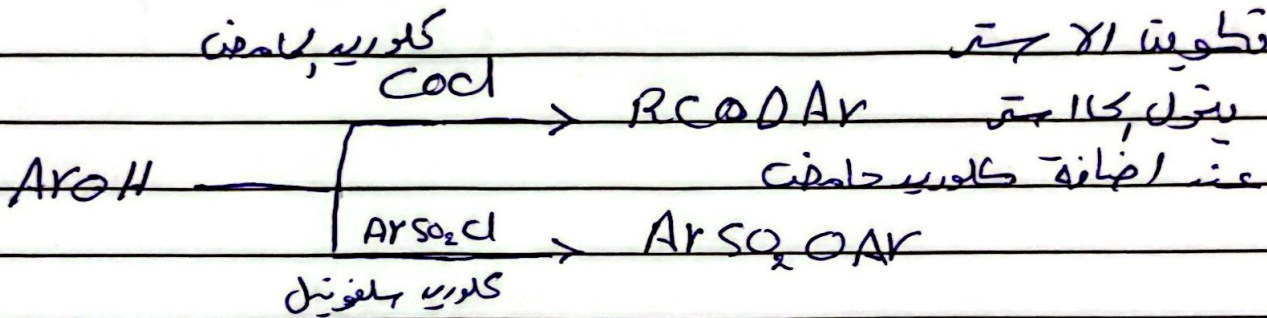 تكوين الاستر
كلوريد الحامض
COCl
RCOOAr
يتحول إلى استر
ArOH
عند اضافة كلوريد حامض
ArSO₂Cl
ArSO₂OAr
كلوريد سلفونيل